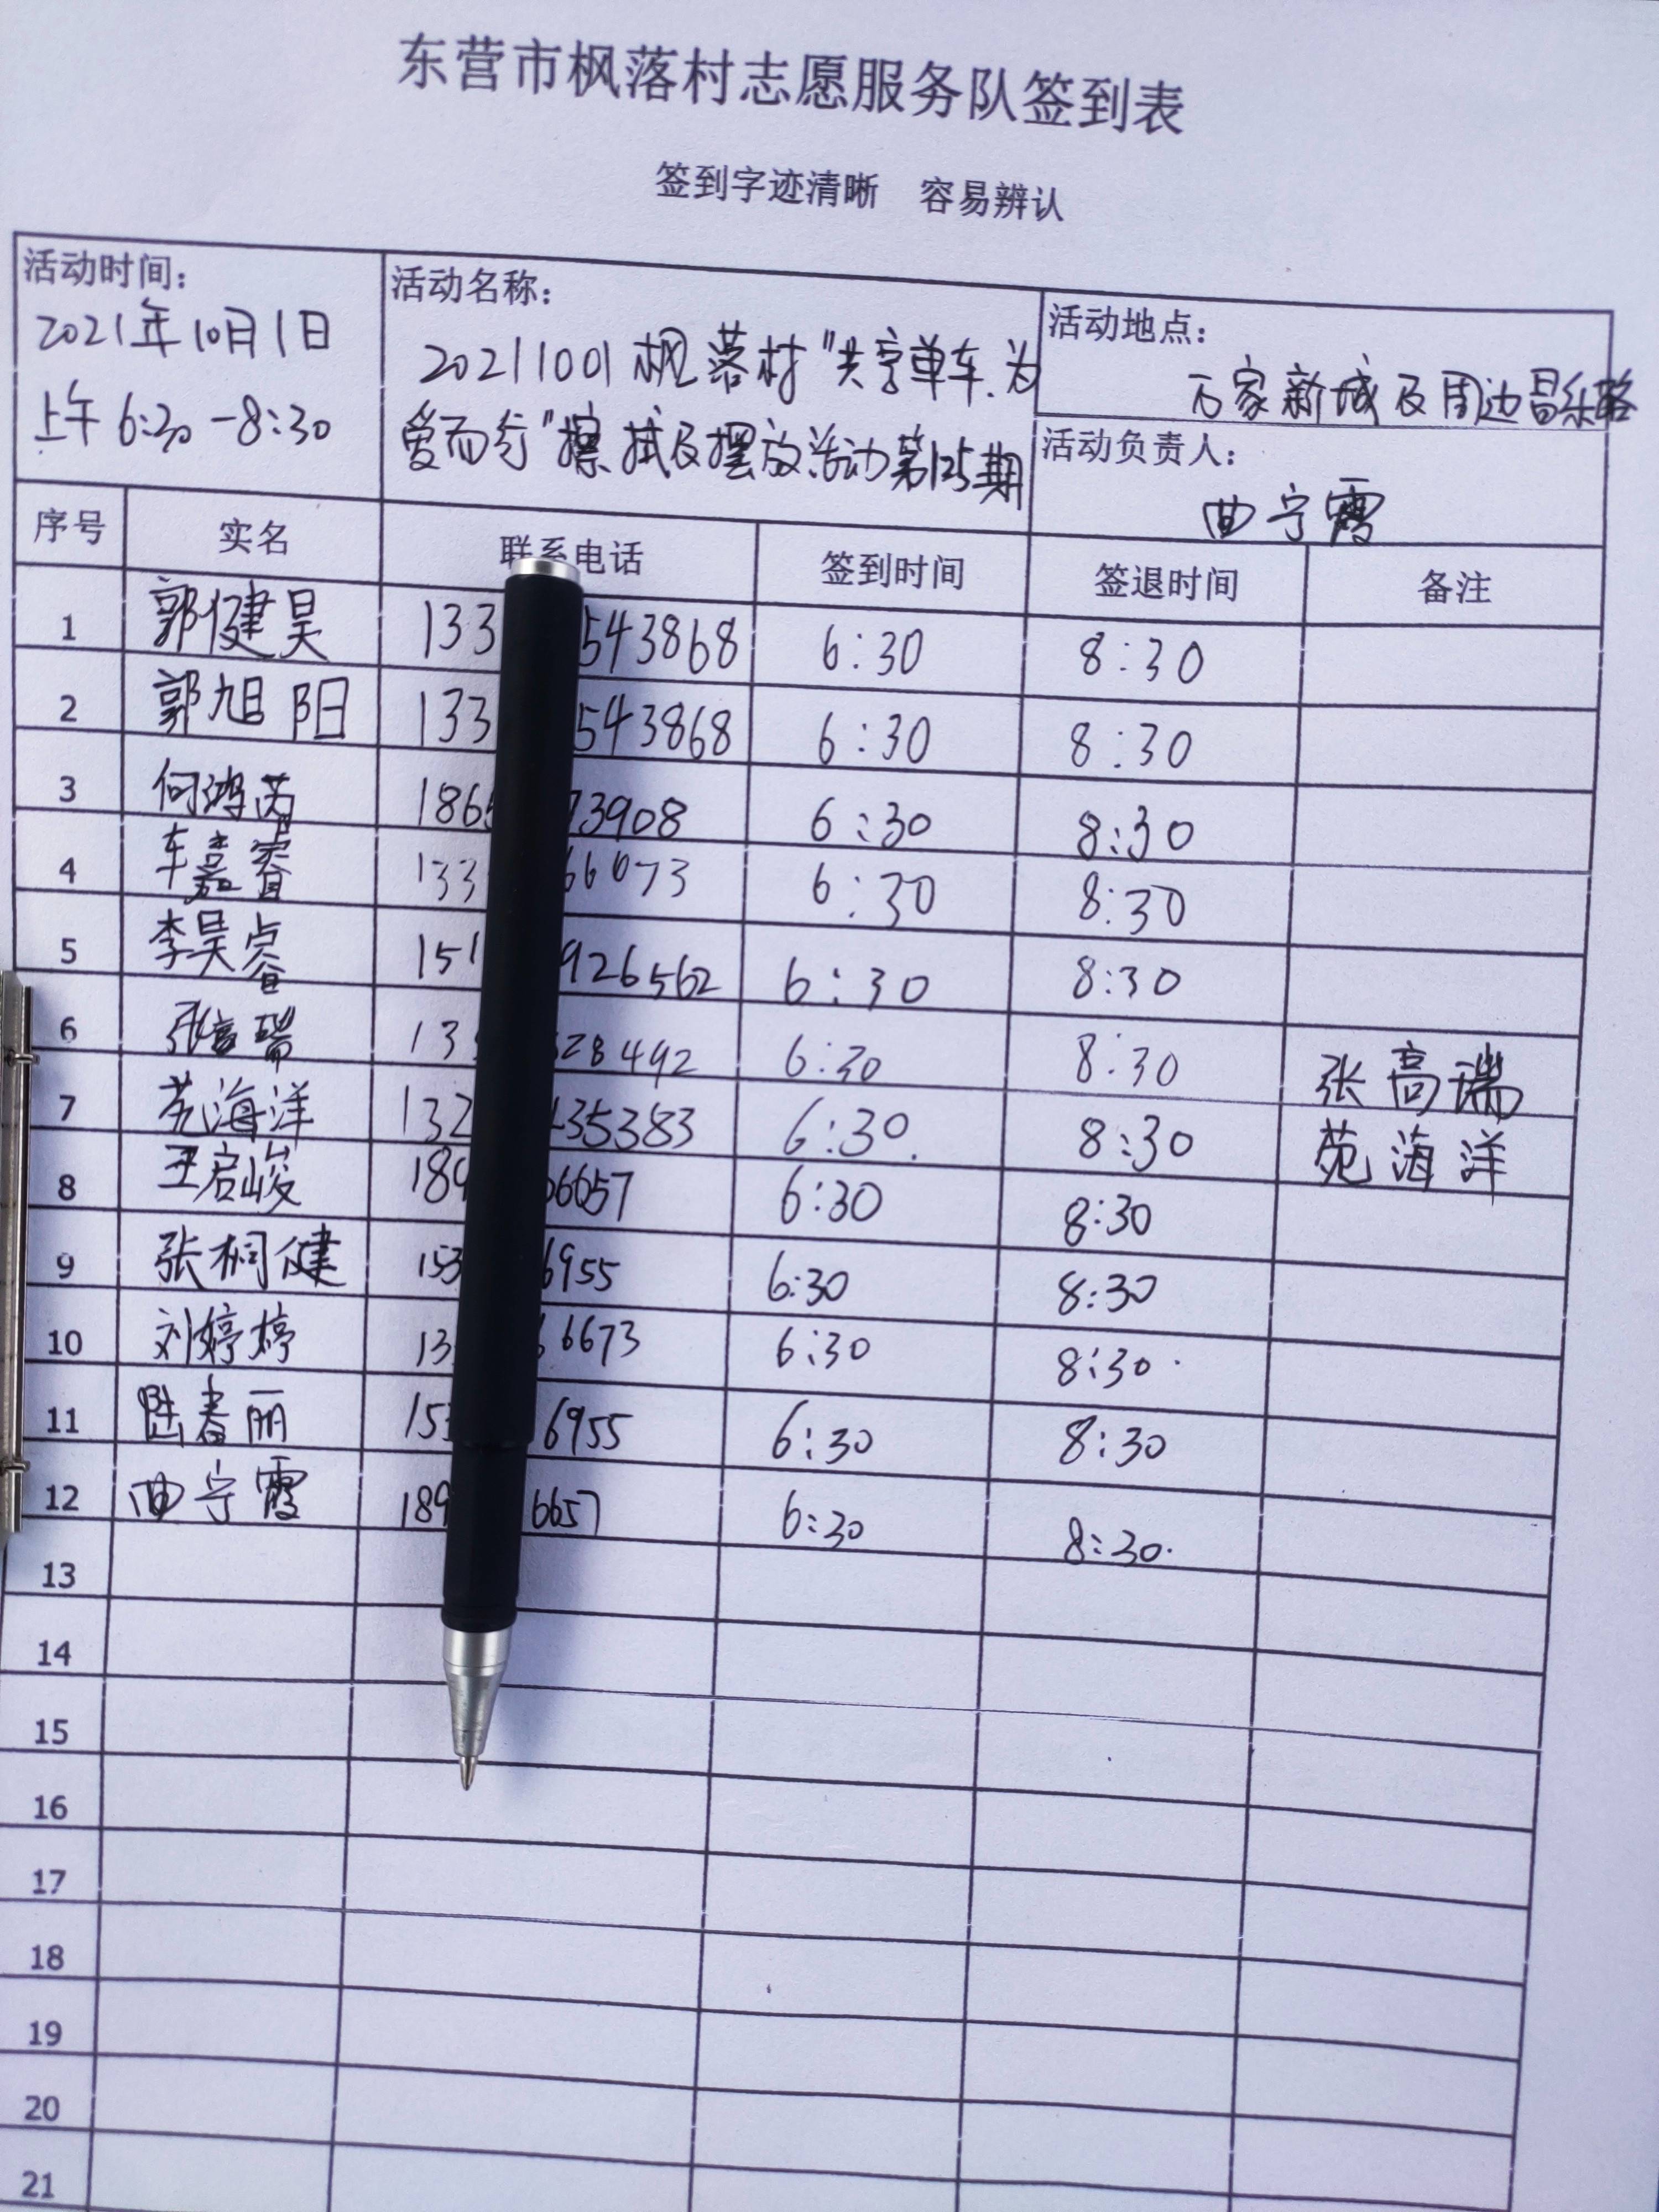 东营市枫落村志愿服务队签到表
签到字迹清晰 容易辨认
活动时间:
2021年10月1日
上午6:30-8:30
活动名称:
20211001枫落村"共享单车.为
爱而行"擦拭及摆放活动第125期
活动地点:
万家新城及周边昌乐路
活动负责人:
曲宁霞
序号 实名 联系电话 签到时间 签退时间 备注
1 郭健昊 133 543868 6:30 8:30
2 郭旭阳 133 543868 6:30 8:30
3 何鸿芮 186 73908 6:30 8:30
4 车嘉睿 133 66073 6:30 8:30
5 李昊睿 151 926562 6:30 8:30
6 张高瑞 13 28492 6:30 8:30 张高瑞
7 苑海洋 132 35383 6:30. 8:30 苑海洋
8 王启峻 189 6657 6:30 8:30
9 张桐健 153 6955 6:30 8:30
10 刘婷婷 13 6673 6:30 8:30.
11 陆春丽 153 6955 6:30 8:30
12 曲宁霞 189 6657 6:30 8:30.
13
14
15
16
17
18
19
20
21